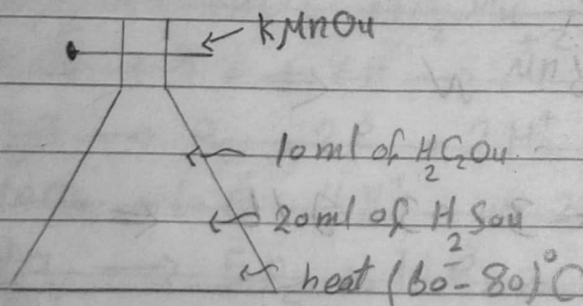 KMnO4
10ml of H2C2O4
20ml of H2SO4
heat (60-80)°C